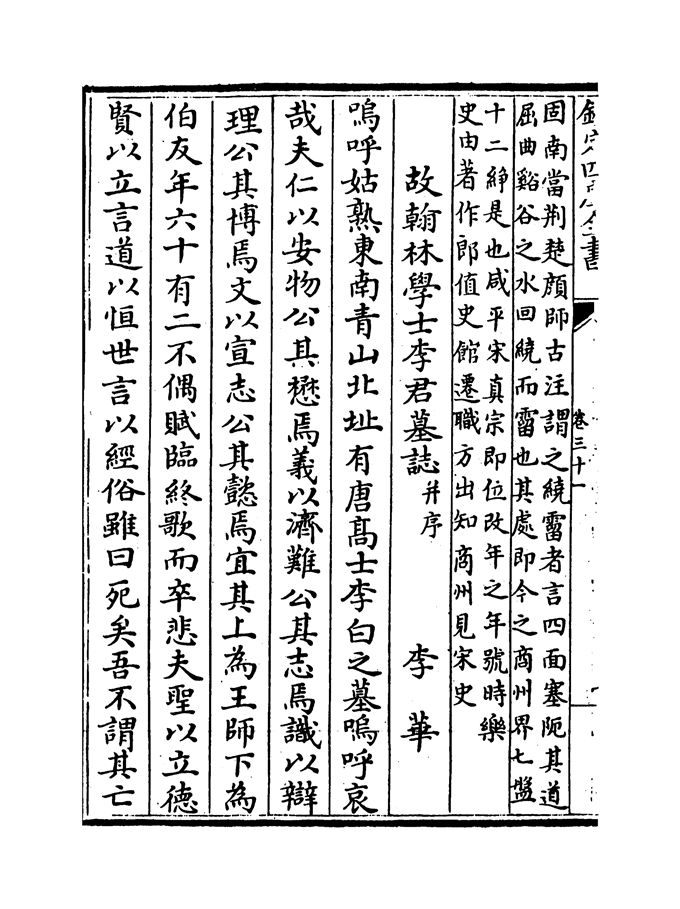 欽定四庫全書
卷三十一
固南當荆楚顔師古注謂之繞霤者言四面塞阨其道
屈曲谿谷之水回繞而霤也其處即今之商州界七盤
十二繂是也咸平宋真宗即位改年之年號時樂
史由著作郎值史館遷職方出知商州見宋史
故翰林學士李君墓誌并序 李華
嗚呼姑熟東南青山北址有唐髙士李白之墓嗚呼哀
哉夫仁以安物公其懋焉義以濟難公其志焉識以辯
理公其博焉文以宣志公其懿焉宜其上為王師下為
伯友年六十有二不偶賦臨終歌而卒悲夫聖以立德
賢以立言道以恒世言以經俗雖曰死矣吾不謂其亡